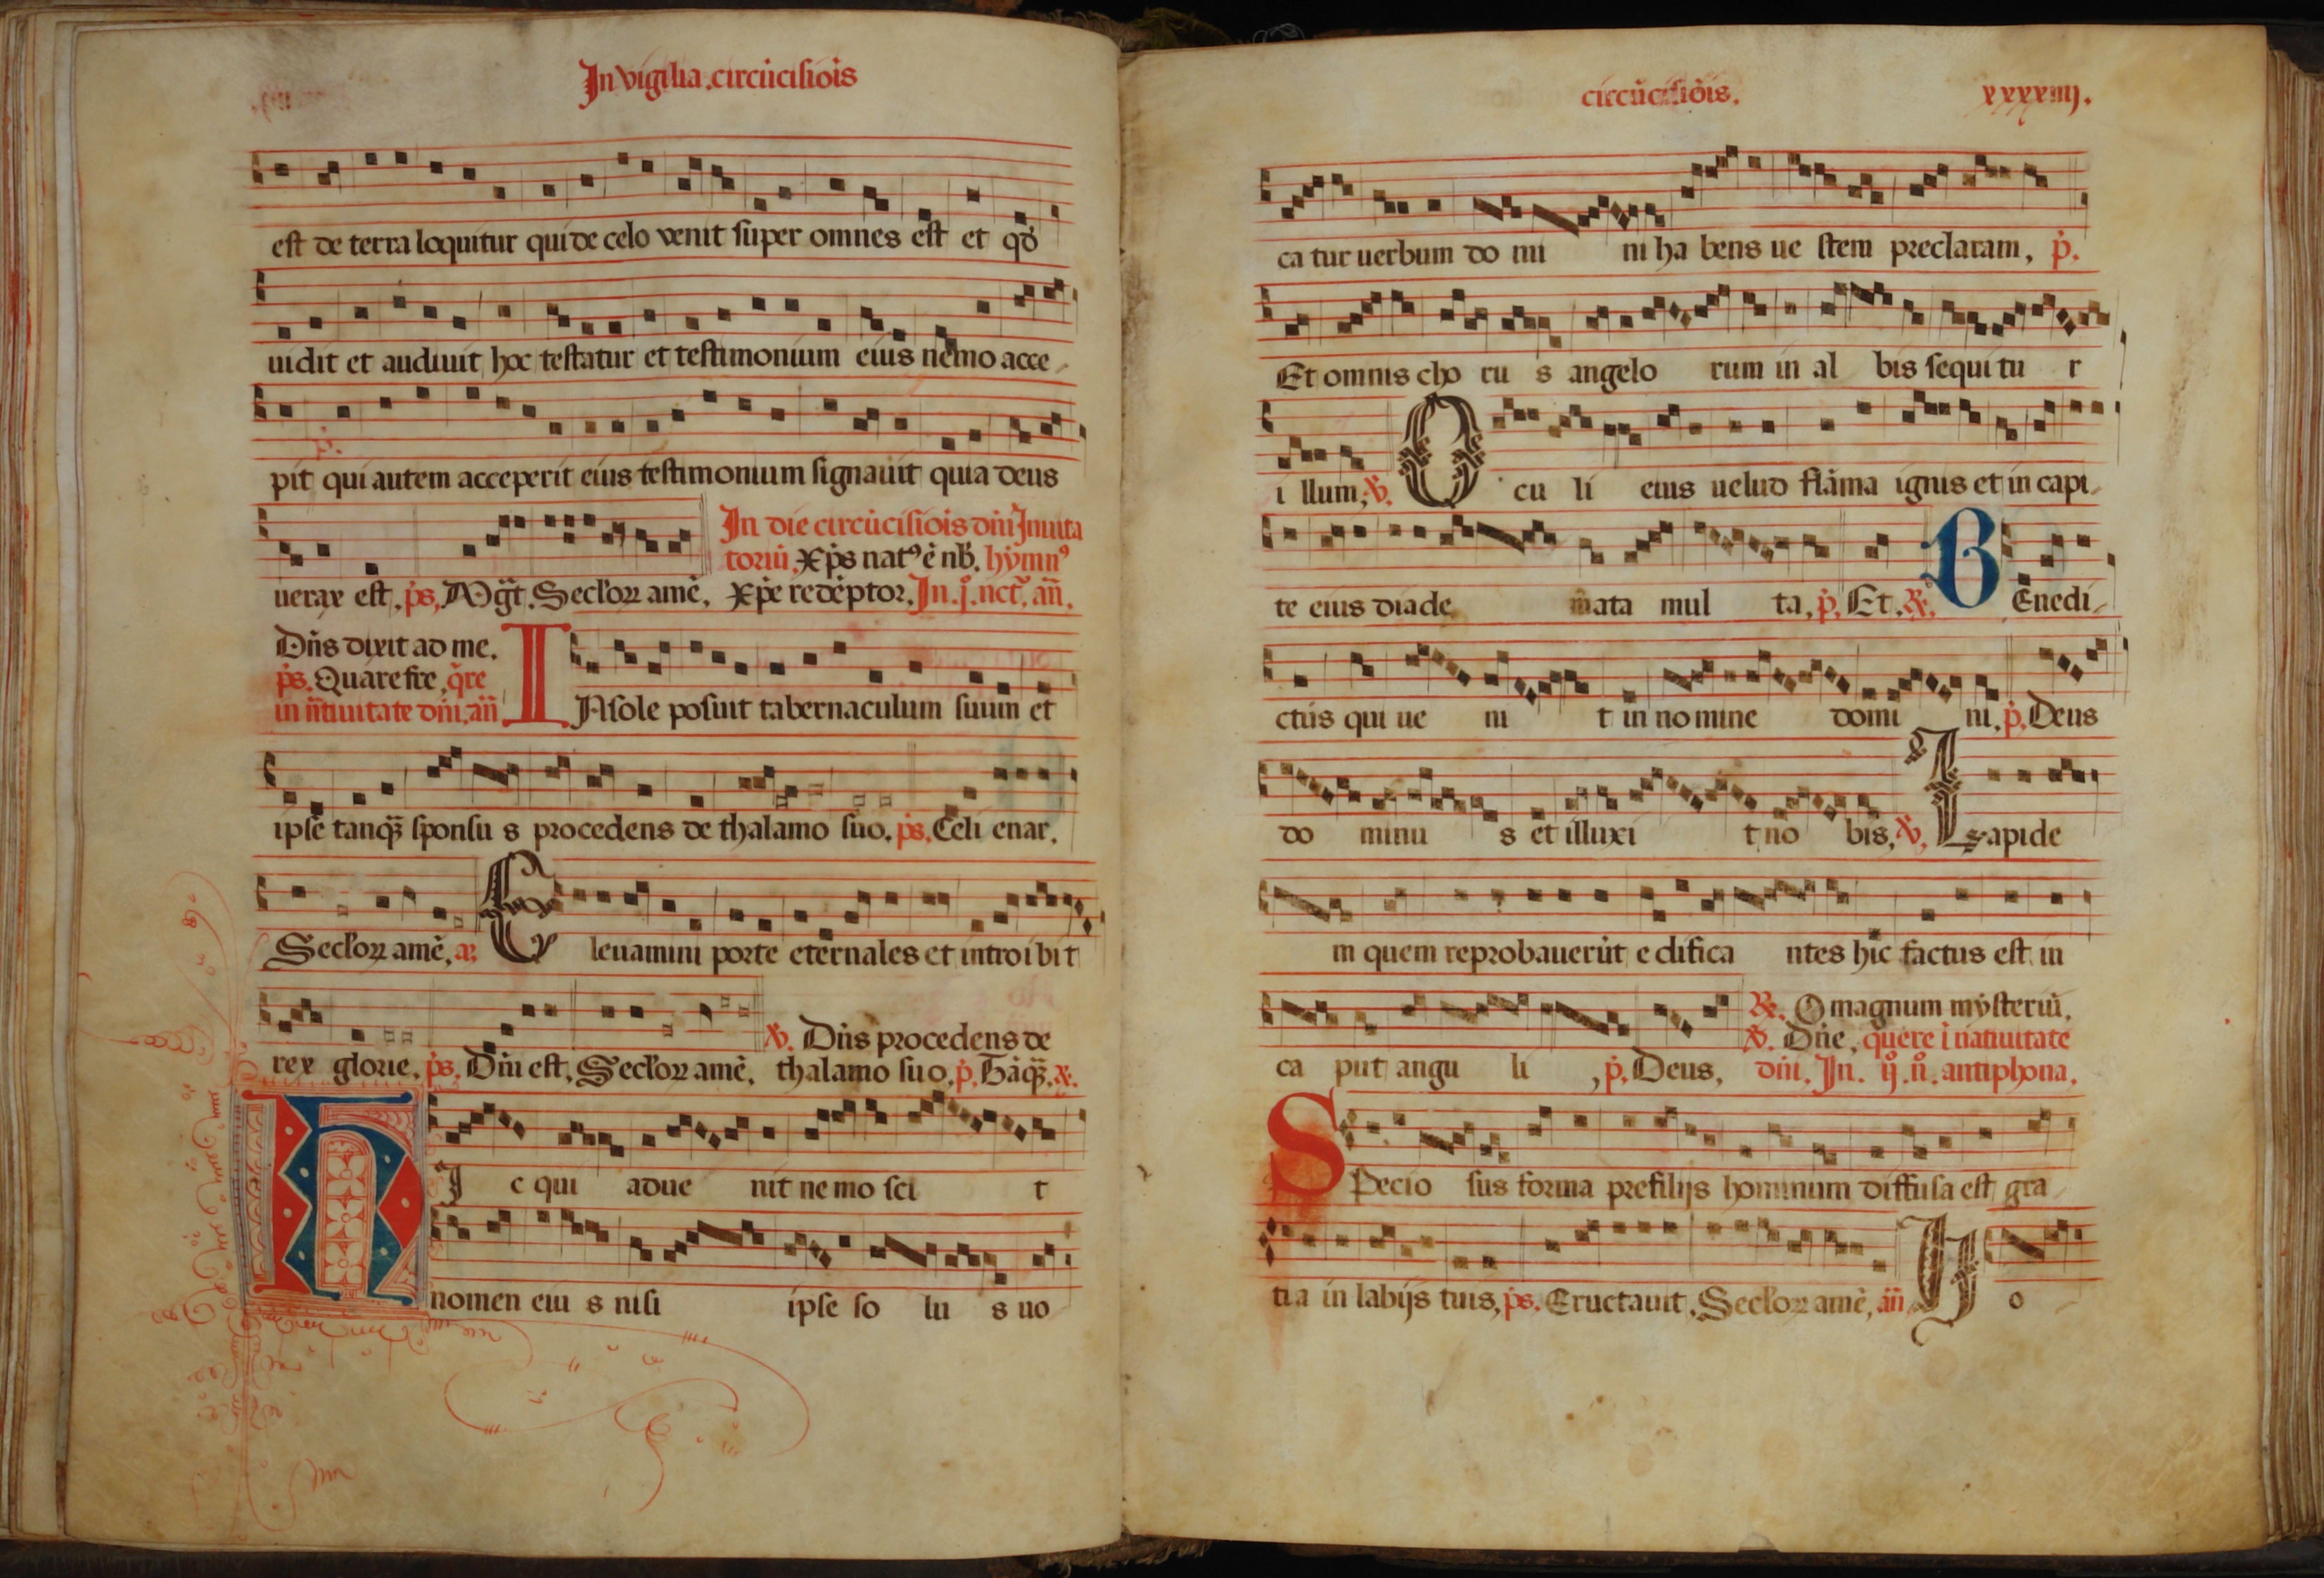 In vigilia.circu̇cisiois
est de terra loquitur qui de celo venit super omnes est et qđ
uidit et audiuit hoc testatur et testimonium eius nemo acce
pit qui autem acceperit eius testimonium signauit quia deus
In die circu̇cisiois dn̄i Inuita
toriū. xp̄s nat᷒ ē nb̄. hymn᷒
uerax est. ps. Mḡt. Seclꝝ amē. xp̄e redēptor. In. j. nct. an̄.
Dn̄s dixit ad me.
ps. Quare fre. q̄re
in n̄tiuitate dn̄i. an̄ IN sole posuit tabernaculum suum et
ipse tanqȝ sponsu s procedens de thalamo suo. ps. Celi enar.
Seclꝝ amē. a. Eleuamini porte eternales et introibit
℣. Dn̄s procedens de
rex glorie. ps. Dn̄i est. Seclꝝ amē. thalamo suo. p. Tāqȝ. ℟.
HI c qui adue nit ne mo sci t
nomen eiu s nisi ipse so lu s uo
circūcisiōis. xxxxiiij.
ca tur uerbum do mi ni ha bens ue stem preclaram, p.
Et omnis cho ru s angelo rum in al bis sequi tu r
i llum, ℣. O cu li eius uelud flāma ignis et in capi
te eius diade mata mul ta, p. Et. ℟. BEnedi
ctus qui ue ni t in no mine domi ni. p. Deus
do minu s et illuxi t no bis. ℣. Lapide
m quem reprobauerūt e difica ntes hic factus est in
℟. O magnum mysteriū.
℣. Dn̄e. quere ī natiuitate
ca put angu li , p. Deus, dn̄i. In. ij. n̊. antiphona.
SPecio sus forma prefilijs hominum diffusa est gra
tia in labijs tuis, ps. Eructauit. Seclꝝ amē, an̄ H o